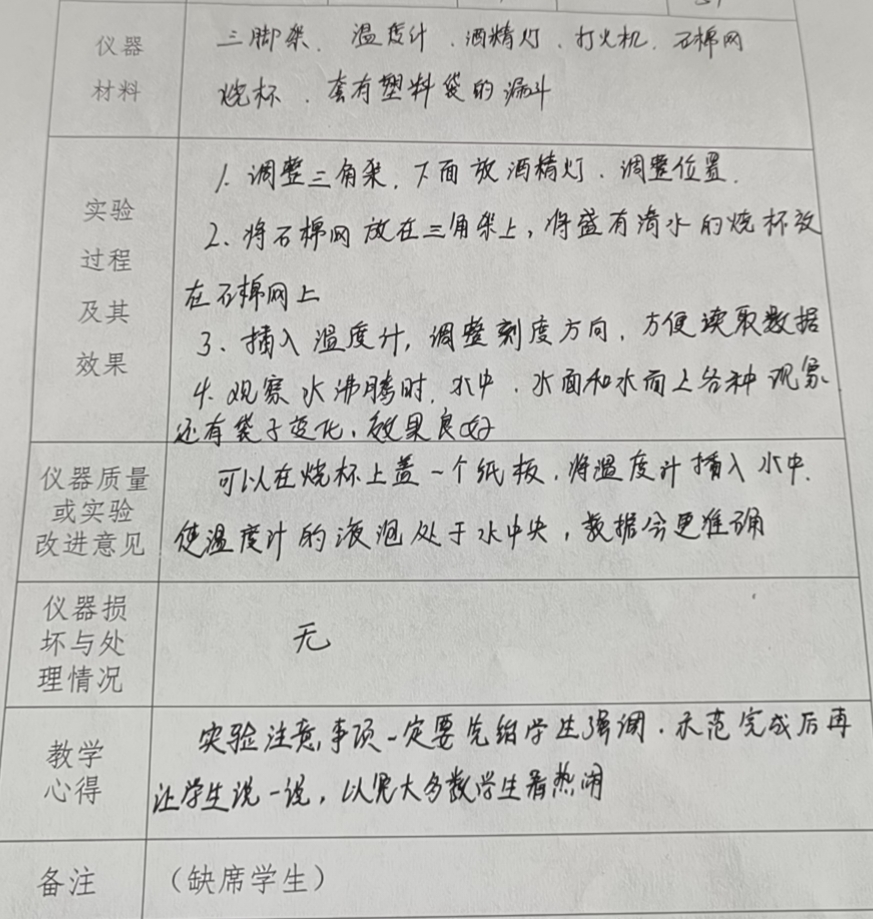 仪器
材料
三脚架、温度计、酒精灯、打火机、石棉网
烧杯、套有塑料袋的漏斗
实验
过程
及其
效果
1. 调整三角架,下面放酒精灯、调整位置.
2、将石棉网放在三角架上,将盛有清水的烧杯放
在石棉网上
3、插入温度计,调整刻度方向,方便读取数据
4. 观察水沸腾时,水中、水面和水面上各种现象
还有袋子变化,效果良好
仪器质量
或实验
改进意见
可以在烧杯上盖一个纸板,将温度计插入水中.
使温度计的液泡处于水中央,数据会更准确
仪器损
坏与处
理情况
无
教学
心得
实验注意事项一定要先给学生强调.示范完成后再
让学生说一说,以免大多数学生看热闹
备注
(缺席学生)